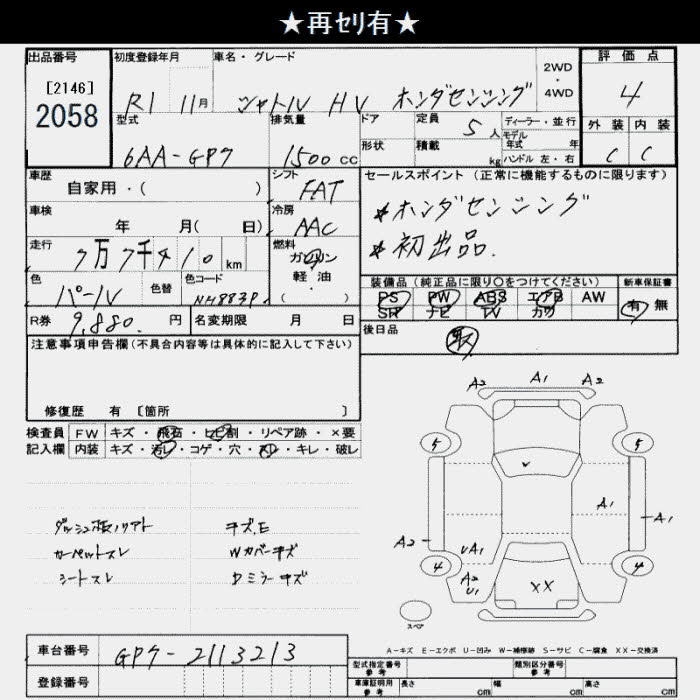 ★再ｾﾘ有★
出品番号
[2146]
2058
初度登録年月
R1 11月
車名・グレード
シャトル HV ホンダセンシング
2WD
・
4WD
評価点
4
外装 内装
C C
型式
6AA-GP7
排気量
1500cc
ドア
形状
定員 5人
積載 kg
ディーラー・並行
モデル年式 年
ハンドル 左・右
車歴
自家用・( )
シフト
FAT
車検
年 月( 日)
冷房
AAC
走行
7万7千410km
燃料
ガソリン
軽油・
( )
色
パール
色替
色コード
NH883P
R券
9,880.円
名変期限 月 日
セールスポイント(正常に機能するものに限ります)
*ホンダセンシング
*初出品.
装備品(純正品に限り○をつけてください)
PS PW ABS エアB AW
SR ナビ TV カワ
新車保証書
有 無
後日品
取
注意事項申告欄(不具合内容等は具体的に記入して下さい)
修復歴 有 [箇所 ]
検査員
記入欄
FW キズ・飛石・ヒビ割・リペア跡・×要
内装 キズ・汚レ・コゲ・穴・スレ・キレ・破レ
カーペットスレ
シートスレ
キズ,E
Wカバーキズ
Dミラーキズ
A2 A1 A2
5 5
A1
A1
A2
A1
4 4
A2
U1
XX
スペア
A-キズ E-エクボ U-凹み W-補修跡 S-サビ C-腐食 XX-交換済
車台番号
GP7-2113213
登録番号
型式指定番号
参考
類別区分番号
参考
車庫証明用
参考
長さ cm 幅 cm 高さ cm